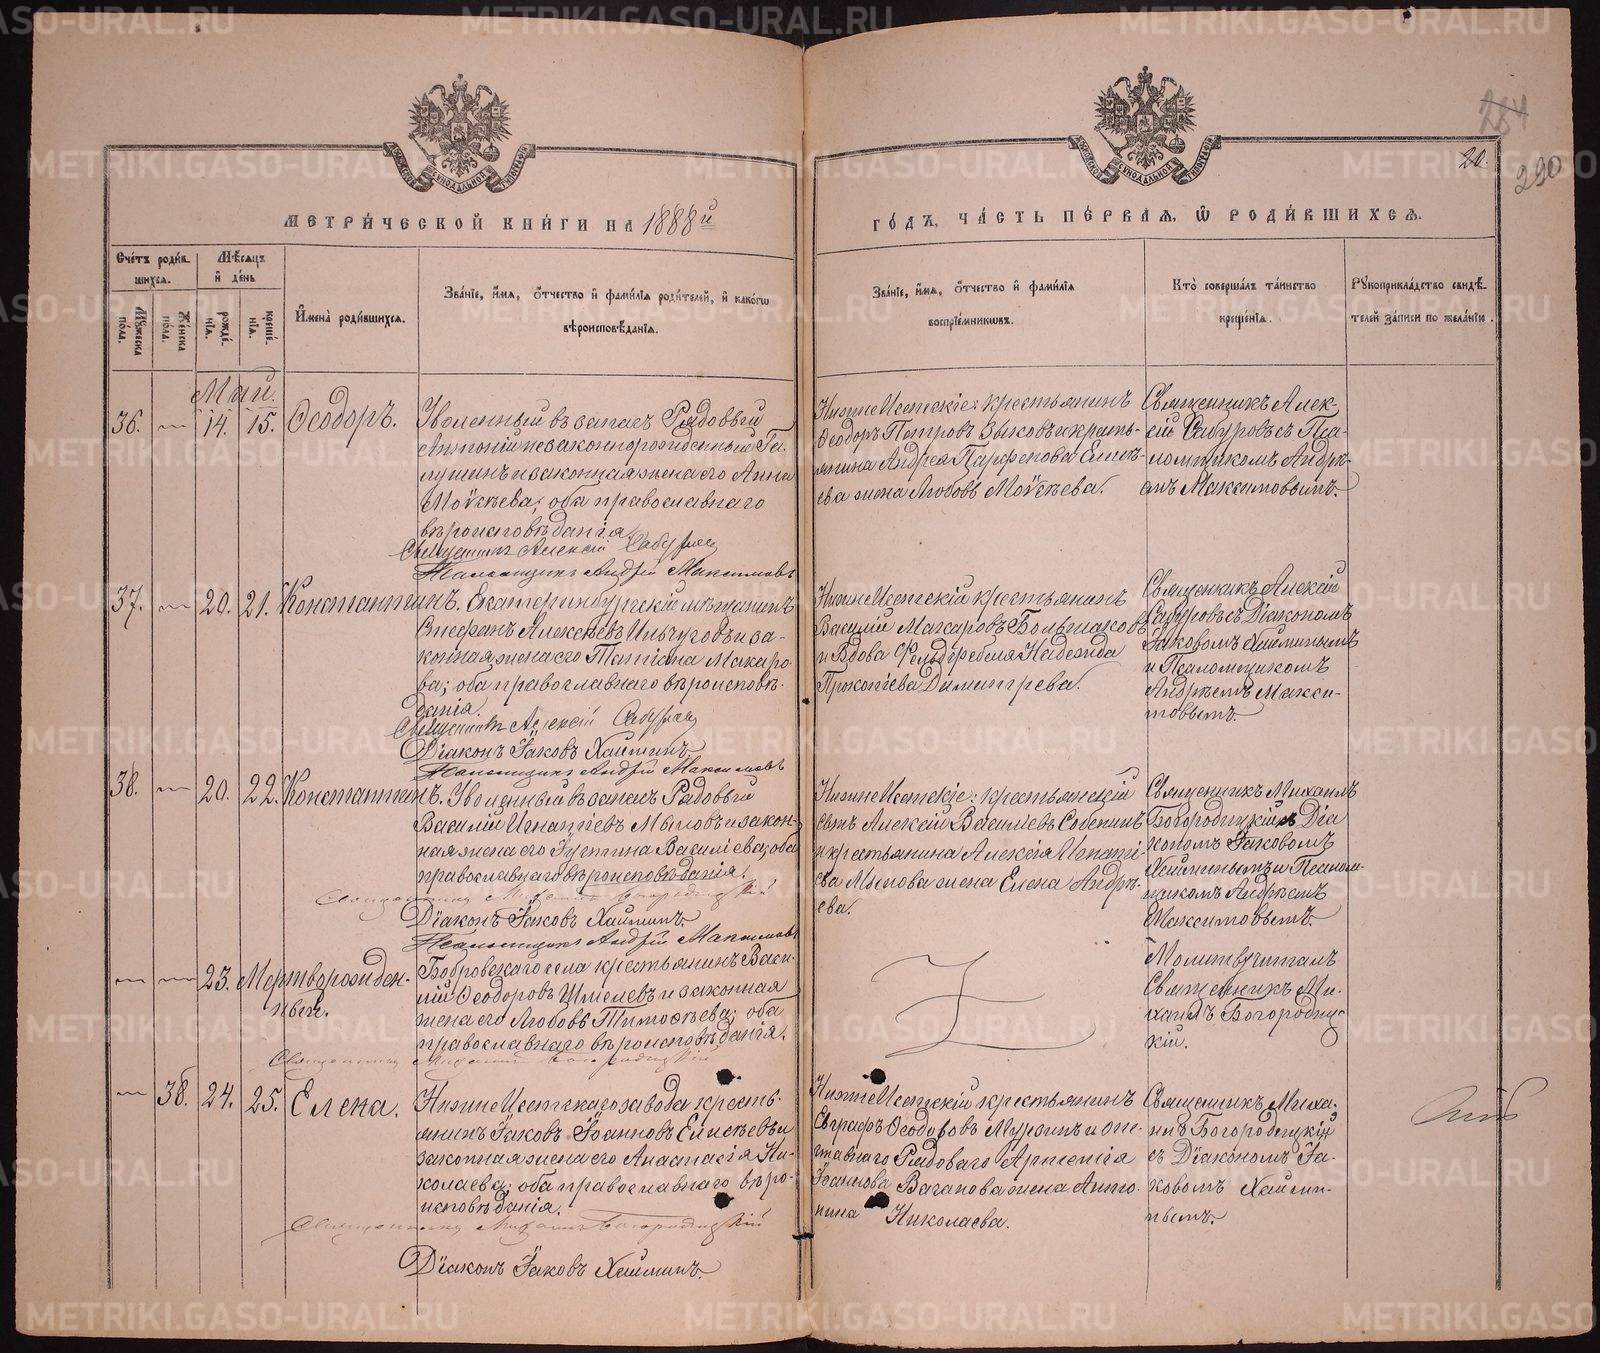 METRIKI.GASO-URAL.RU
284
20.
290
МЕТРИ́ЧЕСКОЙ КНИ́ГИ НА 1888й
ГО́ДЪ, ЧА́СТЬ ПЕ́РВАЯ, Ѡ РОДИ́ВШИХСѦ.
Сче́тъ роди́в-
шихсѧ.
Мѣ́сѧцъ
и҆ де́нь
Мꙋ́жеска
по́ла.
Же́нска
по́ла.
рожде́-
нїѧ.
креще́-
нїѧ.
И҆мена̀ роди́вшихсѧ.
Зва́нїе, и҆́мѧ, ѻ҆́тчество и҆ фами́лїѧ роди́телей, и҆ како́гѡ
вѣроисповѣ́данїѧ.
Зва́нїе, и҆́мѧ, ѻ҆́тчество и҆ фами́лїѧ
воспрїе́мникѡвъ.
Кто̀ соверша́лъ та́инство
креще́нїѧ.
Рꙋкоприкла́дство свидѣ́-
телей за́писи по жела́нїю.
Май.
36. — 14. 15. Ѳеодоръ.
Уволенный въ запасъ Рядовый
Антоній незаконнорожденный Га-
лушинъ и законная жена его Анна
Моѵсѣева; оба православнаго
вѣроисповѣданія.
Священникъ Алексій Сабуровъ
Псаломщикъ Андрей Максимовъ
НижнеИсетскіе: крестьянинъ
Ѳеодоръ Петровъ Зыковъ и кресть-
янина Андрея Парѳенова Елисѣ-
ева жена Любовь Моѵсѣева.
Священникъ Алек-
сій Сабуровъ съ Пса-
ломщикомъ Андре-
емъ Максимовымъ.
37. — 20. 21. Константинъ.
Екатеринбургскій мѣщанинъ
Стефанъ Алексѣевъ Ильчуговъ и за-
конная жена его Татіана Макаро-
ва; оба православнаго вѣроисповѣ-
данія.
Священникъ Алексій Сабуровъ
Діаконъ Іаковъ Хайминъ
Псаломщикъ Андрей Максимовъ
НижнеИсетскій крестьянинъ
Василій Макаровъ Большаковъ
и Вдова Фельдфебеля Надежда
Прокопіева Димитрева.
Священникъ Алексій
Сабуровъ съ Діакономъ
Іаковомъ Хайминымъ
и Псаломщикомъ
Андреемъ Макси-
мовымъ.
38. — 20. 22. Константинъ.
Уволенный въ запасъ Рядовый
Василій Игнатіевъ Мыловъ и закон-
ная жена его Іустина Василіева; оба
православнаго вѣроисповѣданія.
Священникъ Михаилъ Богородицкій
Діаконъ Іаковъ Хайминъ
Псаломщикъ Андрей Максимовъ
НижнеИсетскіе: крестьянскій
сынъ Алексій Василіевъ Собенинъ
и крестьянина Алексія Игнаті-
ева Мылова жена Елена Андрѣ-
ева.
Священникъ Михаилъ
Богородицкій съ Діа
кономъ Іаковомъ
Хайминымъ и Псалом-
щикомъ Андреемъ
Максимовымъ.
— — 23. Мертворожден-
ный.
Бобровскаго села крестьянинъ Васи-
лій Ѳеодоровъ Шмелевъ и законная
жена его Любовь Тимоѳѣева; оба
православнаго вѣроисповѣданія.
Священникъ Михаилъ Богородицкій
Молитву читалъ
Священникъ Ми-
хаилъ Богородиц-
кій.
— 38. 24. 25. Елена.
НижнеИсетскаго завода кресть-
янинъ Іаковъ Іоанновъ Елисѣевъ и
законная жена его Анастасія Ни-
колаева; оба православнаго вѣро-
исповѣданія.
Священникъ Михаилъ Богородицкій
Діаконъ Іаковъ Хайминъ.
НижнеИсетскій крестьянинъ
Евграфъ Ѳеодоровъ Мурзинъ и от-
ставнаго Рядоваго Арсенія
Іоаннова Вагапова жена Анто-
нина Николаева.
Священникъ Миха-
илъ Богородицкій
съ Діакономъ Іа-
ковомъ Хайми-
нымъ.